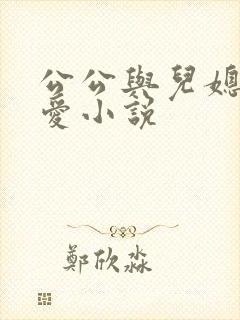 公公與兒媳
愛小說
鄭欣淼